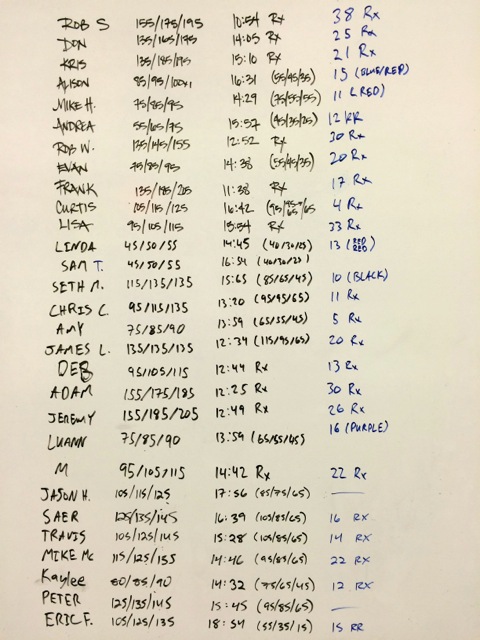 ROB S 155/175/195 10:54 Rx 38 Rx
DON 135/165/175 14:05 Rx 25 Rx
KRIS 135/185/195 15:10 Rx 21 Rx
ALISON 85/95/100x1 16:31 (55/45/35) 15 (BLUE/RED)
MIKE H. 75/85/95 14:29 (75/55/55) 11 (RED)
ANDREA 55/65/75 15:57 (45/35/25) 12 RR
ROB W. 135/145/155 12:52 Rx 30 Rx
EVAN 75/85/95 14:38 (55/45/35) 20 Rx
FRANK 135/185/205 11:38 Rx 17 Rx
CURTIS 105/115/125 16:42 4 Rx
LISA 95/105/115 15:54 Rx 33 Rx
LINDA 45/50/55 14:45 (40/30/25) 13 (RED RED)
SAM T. 45/50/55 16:54 (40/30/25)
SETH M. 115/135/135 15:65 (85/65/45) 10 (BLACK)
CHRIS C. 95/115/135 13:20 (95/95/65) 11 Rx
AMY 75/85/90 13:59 (65/55/45) 5 Rx
JAMES L. 135/135/135 12:34 (115/95/65) 20 Rx
DEB 95/105/115 12:44 Rx 13 Rx
ADAM 155/175/185 12:25 Rx 30 Rx
JEREMY 155/185/205 12:49 Rx 26 Rx
LUANN 75/85/90 13:59 (65/55/45) 16 (PURPLE)
M 95/105/115 14:42 Rx 22 Rx
JASON H. 105/115/125 17:56 (85/75/65) —
SAER 125/135/145 16:39 (105/85/65) 16 RX
TRAVIS 105/125/145 15:28 (105/85/65) 14 RX
MIKE Mc 115/125/135 14:46 (95/85/65) 22 RX
Kaylee 80/85/90 14:32 (75/65/45) 12 RX
PETER 125/135/145 15:45 (95/85/65) —
ERIC F. 105/125/135 18:54 (55/35/15) 15 RR